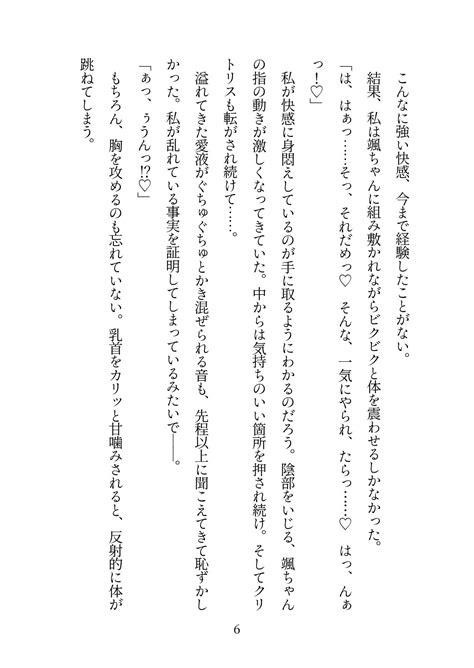 こんなに強い快感、今まで経験したことがない。
結果、私は颯ちゃんに組み敷かれながらビクビクと体を震わせるしかなかった。
「は、はぁっ……そっ、それだめっ♡　そんな、一気にやられ、たらっ……♡　はっ、んぁ
っ！♡」
私が快感に身悶えしているのが手に取るようにわかるのだろう。陰部をいじる、颯ちゃん
の指の動きが激しくなってきていた。中からは気持ちのいい箇所を押され続け。そしてクリ
トリスも転がされ続けて……。
溢れてきた愛液がぐちゅぐちゅとかき混ぜられる音も、先程以上に聞こえてきて恥ずかし
かった。私が乱れている事実を証明してしまっているみたいで――。
「ぁっ、ぅうんっ⁉♡」
もちろん、胸を攻めるのも忘れていない。乳首をカリッと甘噛みされると、反射的に体が
跳ねてしまう。
6